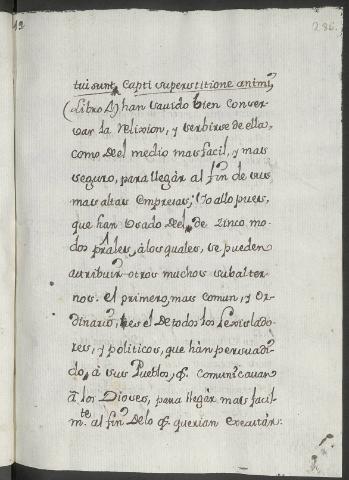 12
286.
tui sunt Capti superstitione animi,
(Libro A) han savido bien conser-
var la Relixion, y serbirse de ella,
como de el medio mas facil, y mas
seguro, para llegàr al fin de sus
mas altas Empresas; Yo allo pues,
que han Usado de el, de zinco mo-
dos prâles, à los quales, se pueden
atribuir otros muchos subalter-
nos. el primero, mas comun, y or-
dinario, es el De todos los Lexislado-
res, y politicos, que hàn persuadi-
do, à sus Pueblos, q̃. comunicavan
à los Dioses, para llegàr mas facil-
mte. al fin de lo q̃. querian executàr: